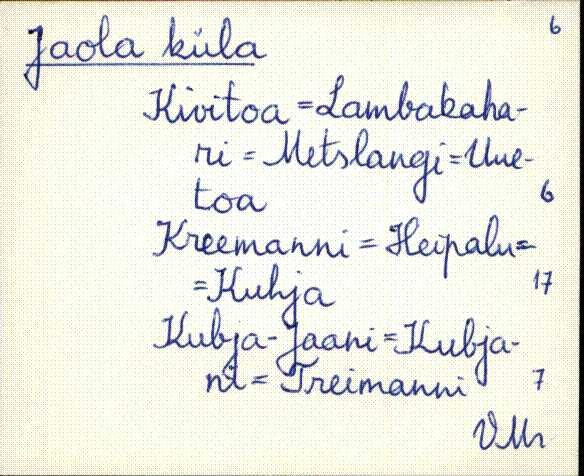 6
Jaola küla
Kivitoa = Lambakaha-
ri = Metslangi = Uue-
toa 6
Kreemanni = Heipalu =
= Kuhja 17
Kubja-Jaani = Kubja-
ni = Treimanni 7
VMr